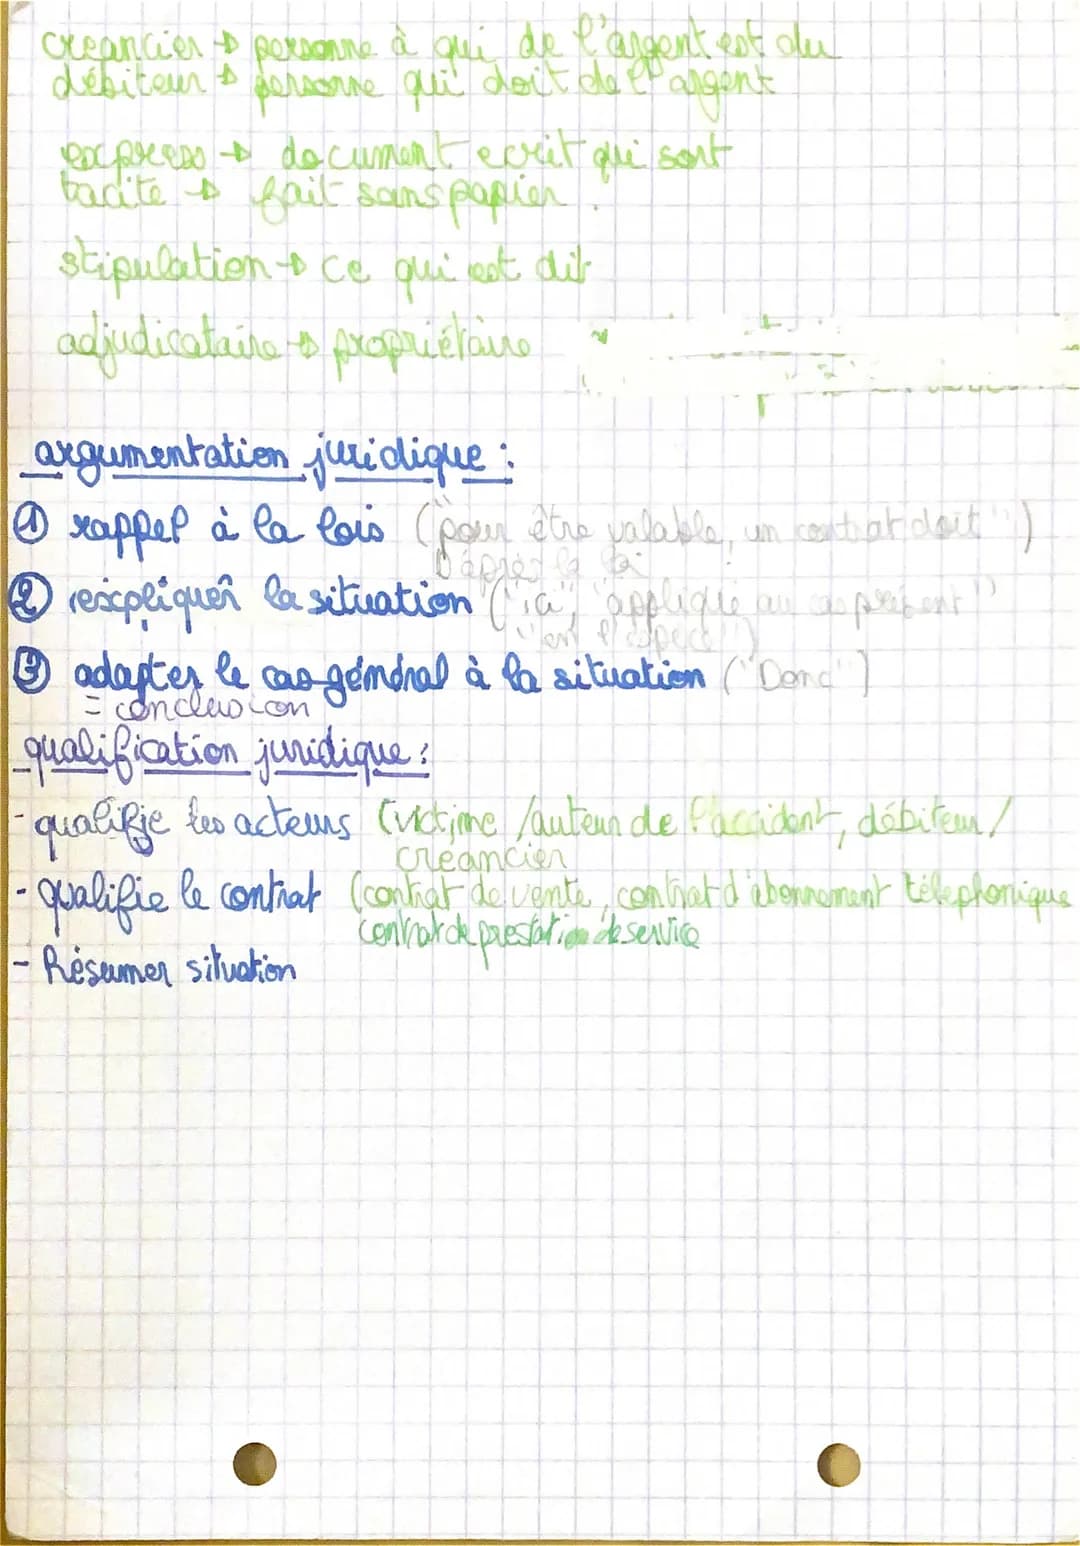 creancier → personne à qui de l'argent est du
débiteur → personne qui doit de l'argent
express → document ecrit qui sont
tacite → fait sans papier.
stipulation → ce qui est dit
adjudicataire → propriétaire
argumentation juridique :
① rappel à la lois ("pour être valable, un contrat doit")
D'après la loi
② expliquer la situation ("ici", "applique au cas présent"
"en l'espèce")
③ adapter le cas général à la situation ("Donc")
= conclusion
qualification juridique :
- qualifie les acteurs (victime / auteur de l'accident, débiteur /
créancier
- qualifie le contrat (contrat de vente, contrat d'abonnement télephonique
contrat de prestation de service
- Résumer situation